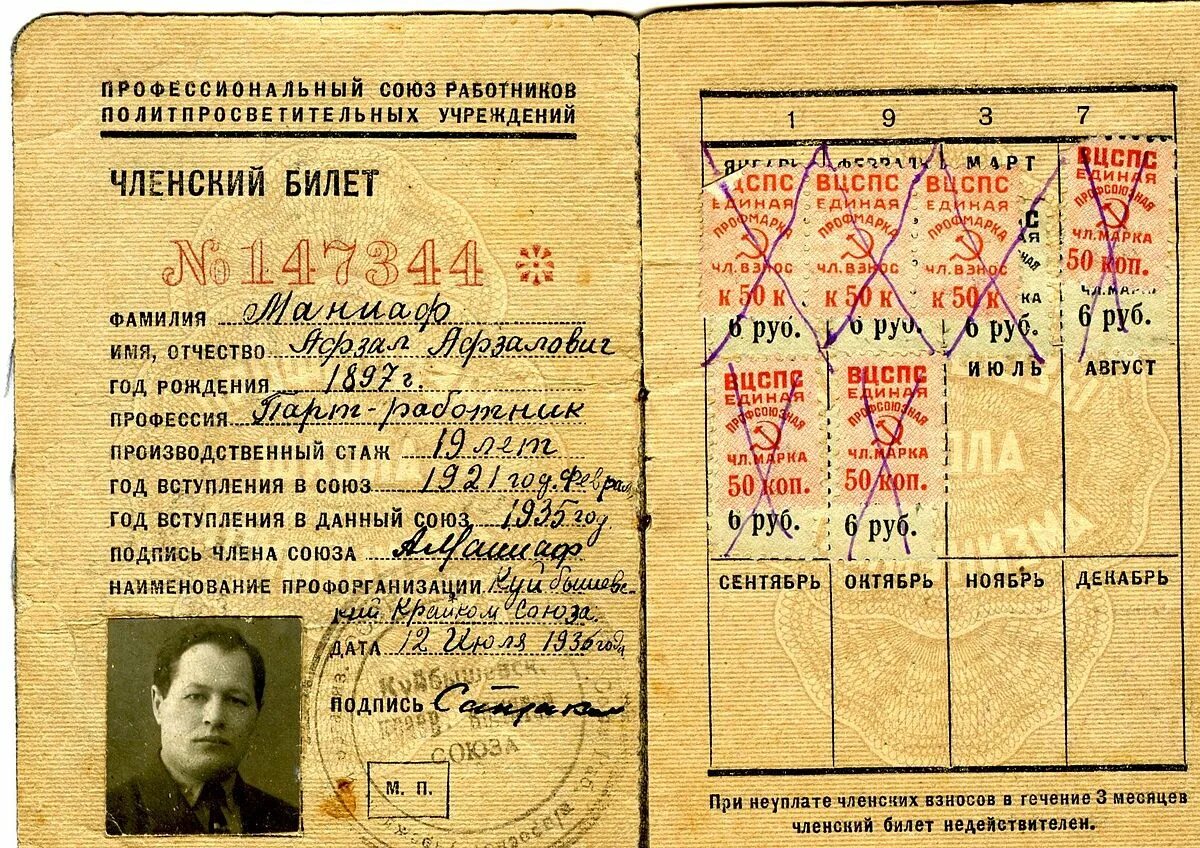 ПРОФЕССИОНАЛЬНЫЙ СОЮЗ РАБОТНИКОВ
ПОЛИТПРОСВЕТИТЕЛЬНЫХ УЧРЕЖДЕНИЙ
ЧЛЕНСКИЙ БИЛЕТ
№ 147344
ФАМИЛИЯ Маниаф
ИМЯ, ОТЧЕСТВО Афзал Афзалович
ГОД РОЖДЕНИЯ 1897 г.
ПРОФЕССИЯ Парт-работник
ПРОИЗВОДСТВЕННЫЙ СТАЖ 19 лет
ГОД ВСТУПЛЕНИЯ В СОЮЗ 1921 год. Феврал
ГОД ВСТУПЛЕНИЯ В ДАННЫЙ СОЮЗ 1935 год
ПОДПИСЬ ЧЛЕНА СОЮЗА АМаниаф
НАИМЕНОВАНИЕ ПРОФОРГАНИЗАЦИИ Куйбышевс-
кий Крайком Союза.
ДАТА 12 Июля 1936 года
ПОДПИСЬ
СОЮЗА
М. П.
1 9 3 7
ЯНВАРЬ ФЕВРАЛЬ МАРТ
ВЦСПС ВЦСПС ВЦСПС ВЦСПС
ЕДИНАЯ ЕДИНАЯ ЕДИНАЯ ЕДИНАЯ
ПРОФМАРКА ПРОФМАРКА ПРОФМАРКА ПРОФСОЮЗНАЯ
ЧЛ. ВЗНОС ЧЛ. ВЗНОС ЧЛ. ВЗНОС ЧЛ. МАРКА
К 50 К К 50 К К 50 К 50 КОП.
6 руб. 6 руб. 6 руб. 6 руб.
ИЮЛЬ АВГУСТ
ВЦСПС ВЦСПС
ЕДИНАЯ ЕДИНАЯ
ПРОФСОЮЗНАЯ ПРОФСОЮЗНАЯ
ЧЛ. МАРКА ЧЛ. МАРКА
50 КОП. 50 КОП.
6 руб. 6 руб.
СЕНТЯБРЬ ОКТЯБРЬ НОЯБРЬ ДЕКАБРЬ
При неуплате членских взносов в течение 3 месяцев
членский билет недействителен.